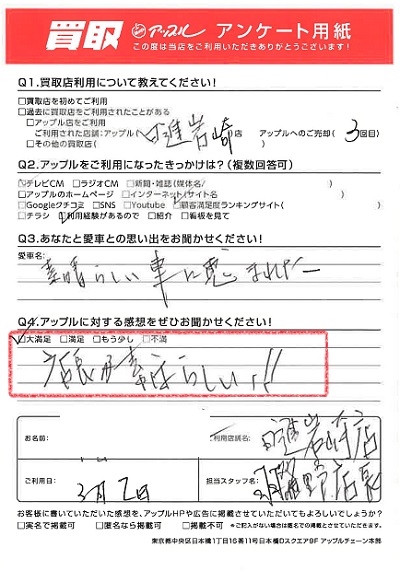 買取 アップル アンケート用紙
この度は当店をご利用いただきありがとうございます!
Q1.買取店利用について教えてください!
□買取店を初めてご利用
□過去に買取店をご利用されたことがある
□アップル店をご利用
ご利用された店舗:アップル( 日進岩崎 店 アップルへのご売却( 3 回目)
□その他の買取店( )
Q2.アップルをご利用になったきっかけは?(複数回答可)
□テレビCM □ラジオCM □新聞・雑誌(媒体名/ )
□アップルのホームページ □インターネット(サイト名 )
□Googleクチコミ □SNS □Youtube □顧客満足度ランキングサイト( )
□チラシ □利用経験があるので □紹介 □看板を見て
Q3.あなたと愛車との思い出をお聞かせください!
愛車名:
素晴らしい車に恵まれたー
Q4.アップルに対する感想をぜひお聞かせください!
□大満足 □満足 □もう少し □不満
店長が素晴らしい!!
お名前:
ご利用店舗名: 日進岩崎店
ご利用日: 3月2日
担当スタッフ名: 野店長
お客様に書いていただいた感想を、アップルHPや広告に掲載させていただいてもよろしいでしょうか?
□実名で掲載可 □匿名なら掲載可 □掲載不可 *ご記入がない場合は匿名での掲載とさせていただきます。
東京都中央区日本橋1丁目16番11号日本橋Dスクエア9F アップルチェーン本部